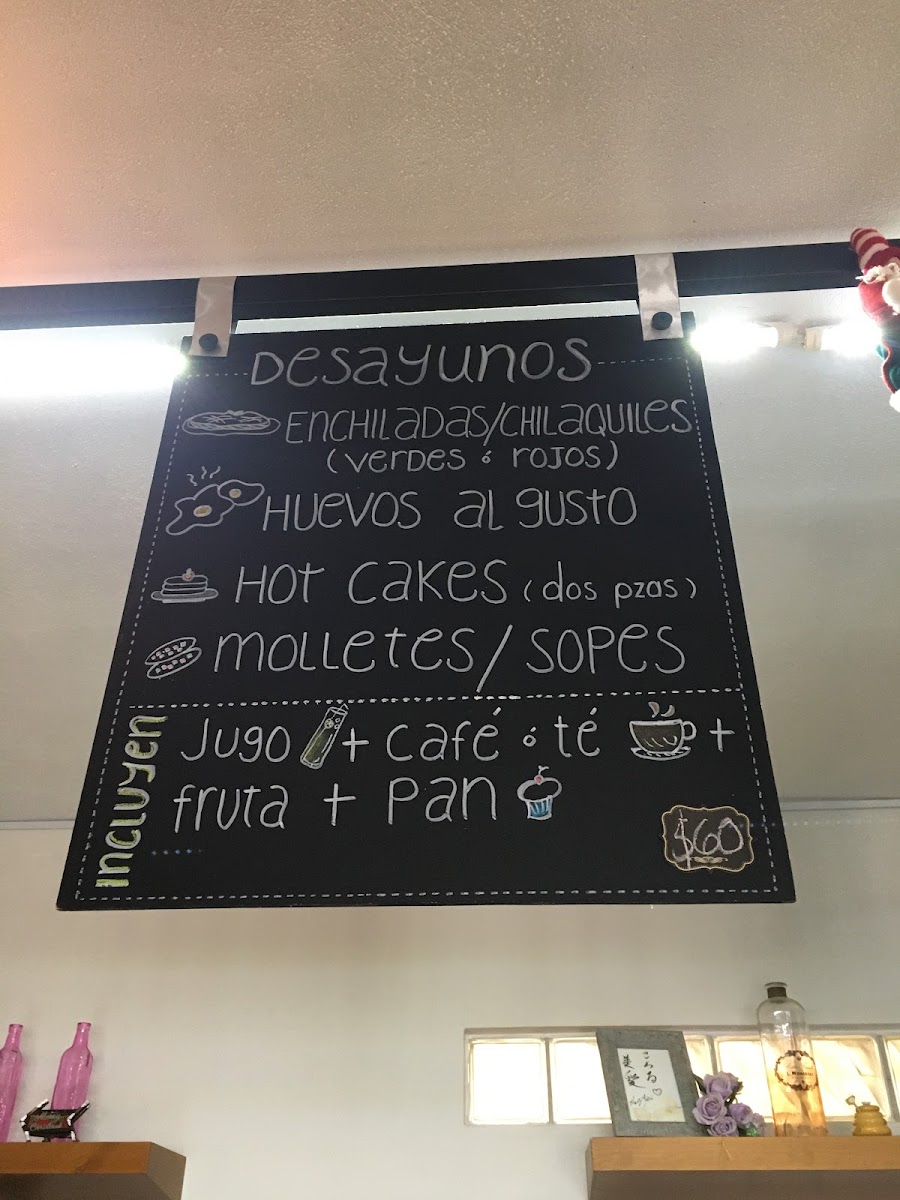 Desayunos
ENCHILADAS/CHILAQUILES
(verdes ó rojos)
Huevos al gusto
Hot cakes (dos pzas)
molletes/sopes
Incluyen
Jugo + café ó té +
fruta + pan
$60